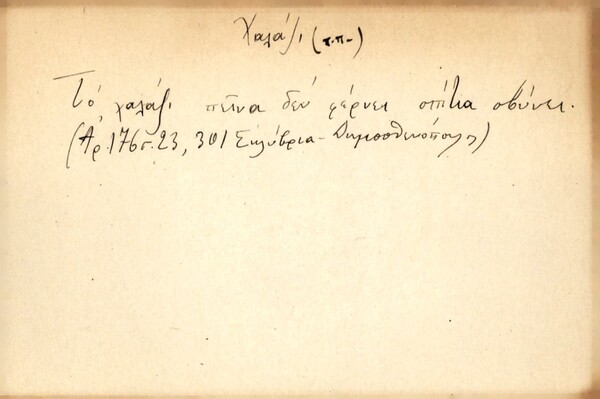 Χαλάζι (τ.π.-)
Τό χαλάζι πεῖνα δέν φέρνει σπήτια σβύνει.
(Αρ.176 σ.23, 301 Σηλύβρια - Δημοσθενόπουλος)